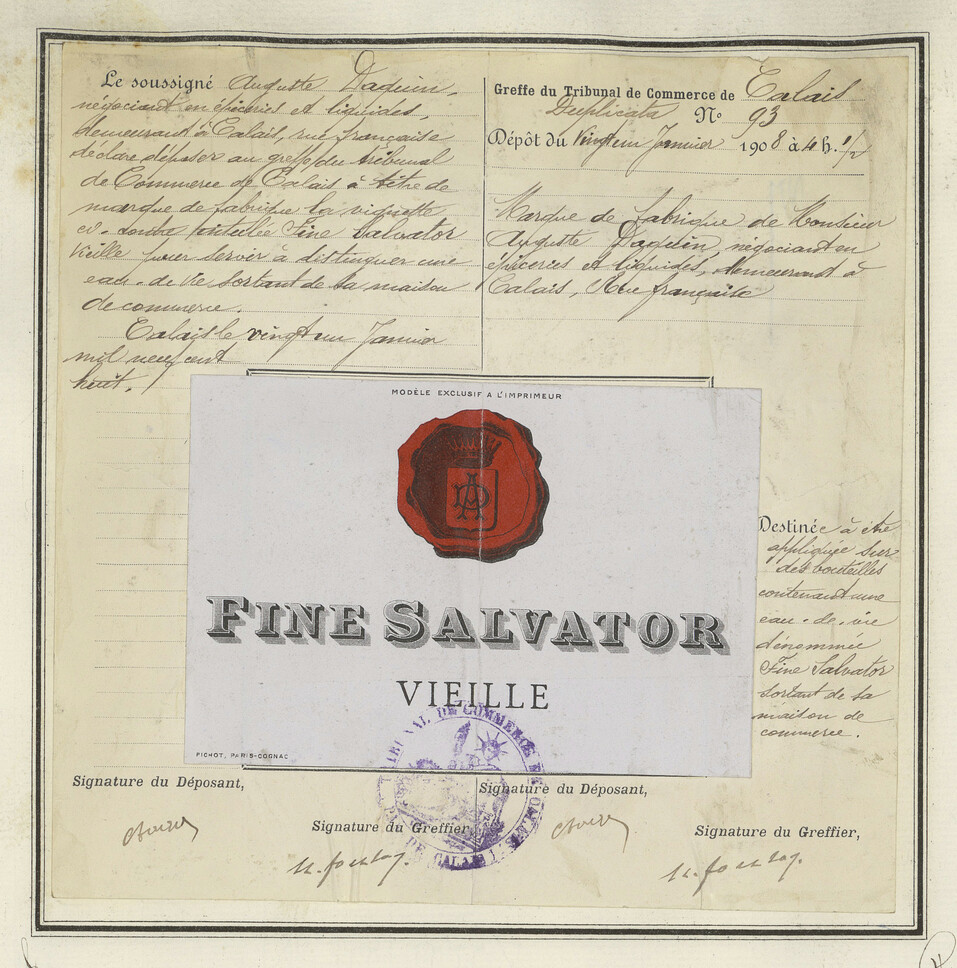 Le soussigné Auguste Daquin,
négociant en épiceries et liquides,
demeurant à Calais, rue française
déclare déposer au greffe du tribunal
de Commerce de Calais à titre de
marque de fabrique la vignette
ci-contre intitulée Fine Salvator
Vieille pour servir à distinguer une
eau-de-vie sortant de sa maison
de commerce.
Calais le vingt un Janvier
mil neuf cent
huit.
Greffe du Tribunal de Commerce de Calais
Duplicata No 93
Dépôt du Vingt un Janvier 1908 à 4 h. 1/2
Marque de fabrique de Monsieur
Auguste Daquin, négociant en
épiceries et liquides, demeurant à
Calais, Rue française
MODÈLE EXCLUSIF A L'IMPRIMEUR
AD
FINE SALVATOR
VIEILLE
PICHOT, PARIS-COGNAC
Destinée à être
appliquée sur
des bouteilles
contenant une
eau-de-vie
dénommée
Fine Salvator
sortant de sa
maison de
commerce.
TRIBUNAL DE COMMERCE
DE CALAIS
Signature du Déposant,
Signature du Greffier,
Signature du Déposant,
Signature du Greffier,